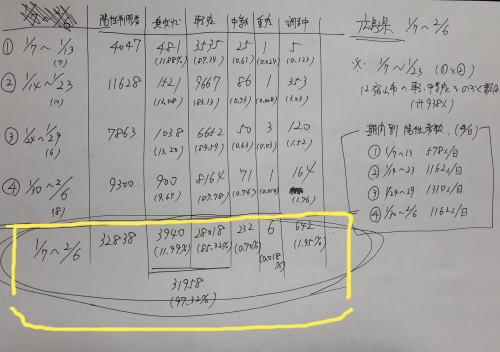 陽性判明者 無症状 軽症 中等症 重症 調査中
① 1/7 ~ 1/13 4047 481 3535 25 1 5
(7) (11.88%) (87.34) (0.61) (0.024) (0.123)
② 1/14 ~ 1/23 11628 1521 9667 86 1 353
(10) (13.08) (83.13) (0.73) (3.03)
③ 1/24 ~ 1/29 7863 1038 6652 50 3 120
(6) (13.20) (84.59) (0.63) (0.03) (1.52)
④ 1/30 ~ 2/6 9300 900 8164 71 1 164
(8) (9.67) (87.78) (0.76) (0.010) (1.76)
1/7 ~ 2/6 32838 3940 28018 232 6 642
(11.99%) (85.32%) (0.70%) (0.018%) (1.95%)
31958
(97.32%)
広島県 1/7 ~ 2/6
※ 1/7 ~ 1/23 (①と②)
は福山市の軽、中等症をのぞく数値
(計938人)
期間別陽性者数
① 1/7~13 578人/日
② 1/14~23 1162人/日
③ 1/24~29 1310人/日
④ 1/30~2/6 1162人/日